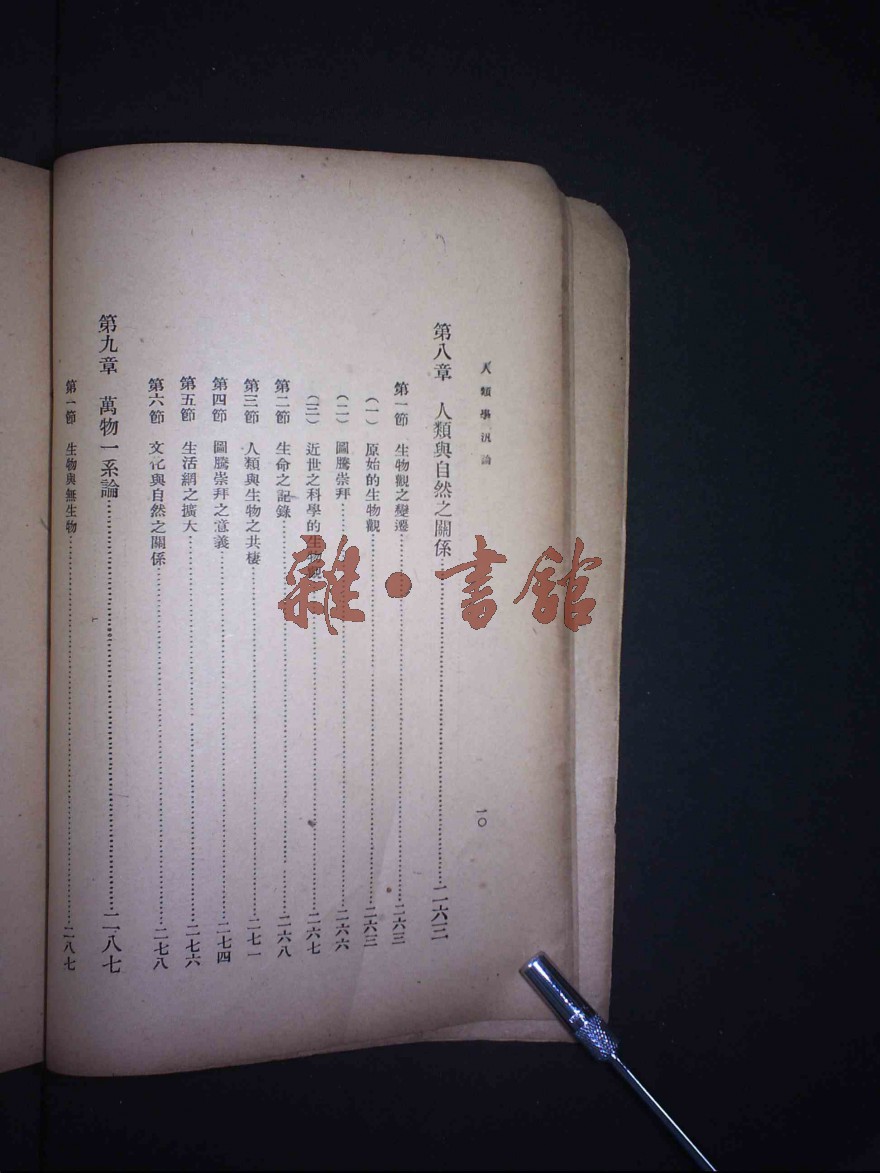 人類學汎論
一〇
第八章　人類與自然之關係……二六三
第一節　生物觀之變遷……二六三
（一）　原始的生物觀……二六三
（二）　圖騰崇拜……二六六
（三）　近世之科學的生物觀……二六七
第二節　生命之記錄……二六八
第三節　人類與生物之共棲……二七一
第四節　圖騰崇拜之意義……二七四
第五節　生活網之擴大……二七六
第六節　文化與自然之關係……二七八
第九章　萬物一系論……二八七
第一節　生物與無生物……二八七
雜·書館